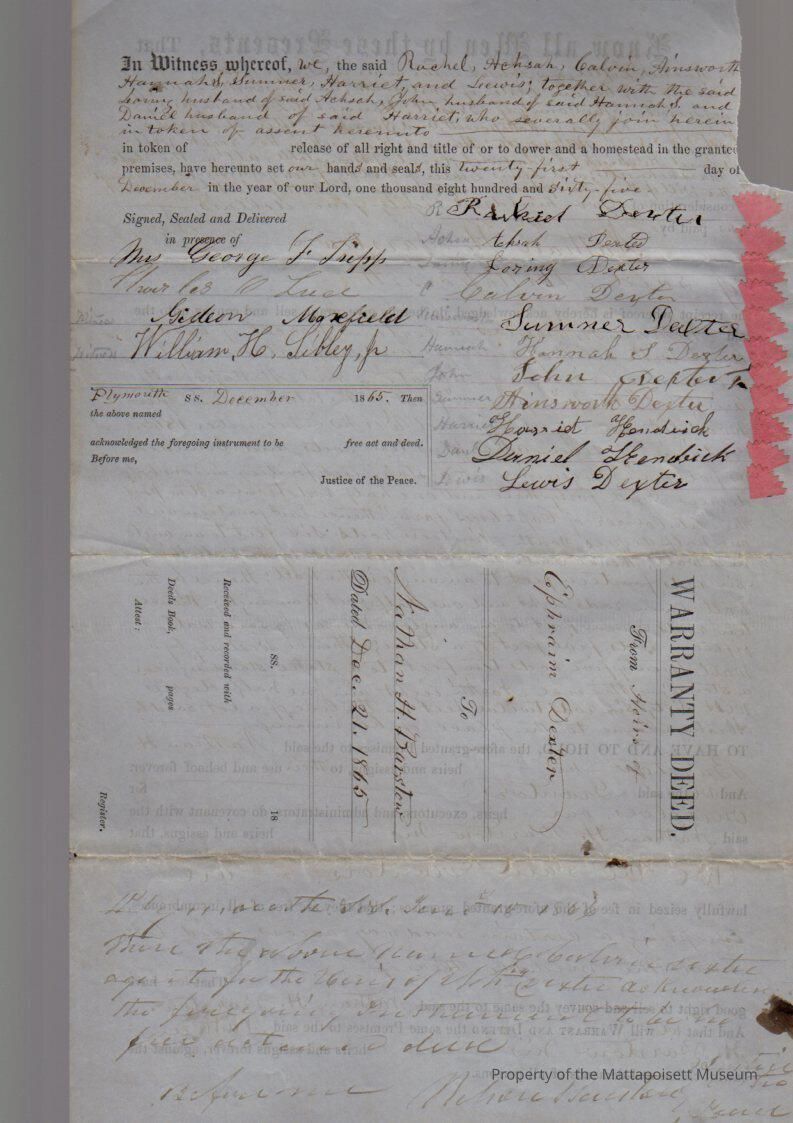 In Witness whereof, we, the said Rachel, Achsah, Calvin, Ainsworth
Hannah S, Sumner, Harriet, and Lewis; together with the said
Loring husband of said Achsah, John, husband of said Hannah S. and
Daniel husband of said Harriet, who severally join herein
in token of assent hereunto
in token of release of all right and title of or to dower and a homestead in the granted
premises, have hereunto set our hands and seals, this twenty first day of
December in the year of our Lord, one thousand eight hundred and sixty-five
Signed, Sealed and Delivered
in presence of
Mrs George F Tripp
Charles Luce
Gideon Maxfield
William H. Sibley, jr
Dexter
Achsah Dexter
Loring Dexter
Calvin Dexter
Sumner Dexter
Hannah S Dexter
John Dexter
Ainsworth Dexter
Harriet Hendrick
Daniel Hendrick
Lewis Dexter
Plymouth SS. December 1865. Then
the above named
acknowledged the foregoing instrument to be free act and deed.
Before me,
Justice of the Peace.
WARRANTY DEED.
From Heirs of
Ephraim Dexter
To
Nathan H. Barstow
Dated Dec. 21. 1865
SS. 18
Received and recorded with
Deeds Book, pages
Attest:
Register.
Then the above named Calvin Dexter
agent for the Heirs of Dexter acknowledged
the foregoing Instrument to be
free act and deed
Before me Barstow
Property of the Mattapoisett Museum